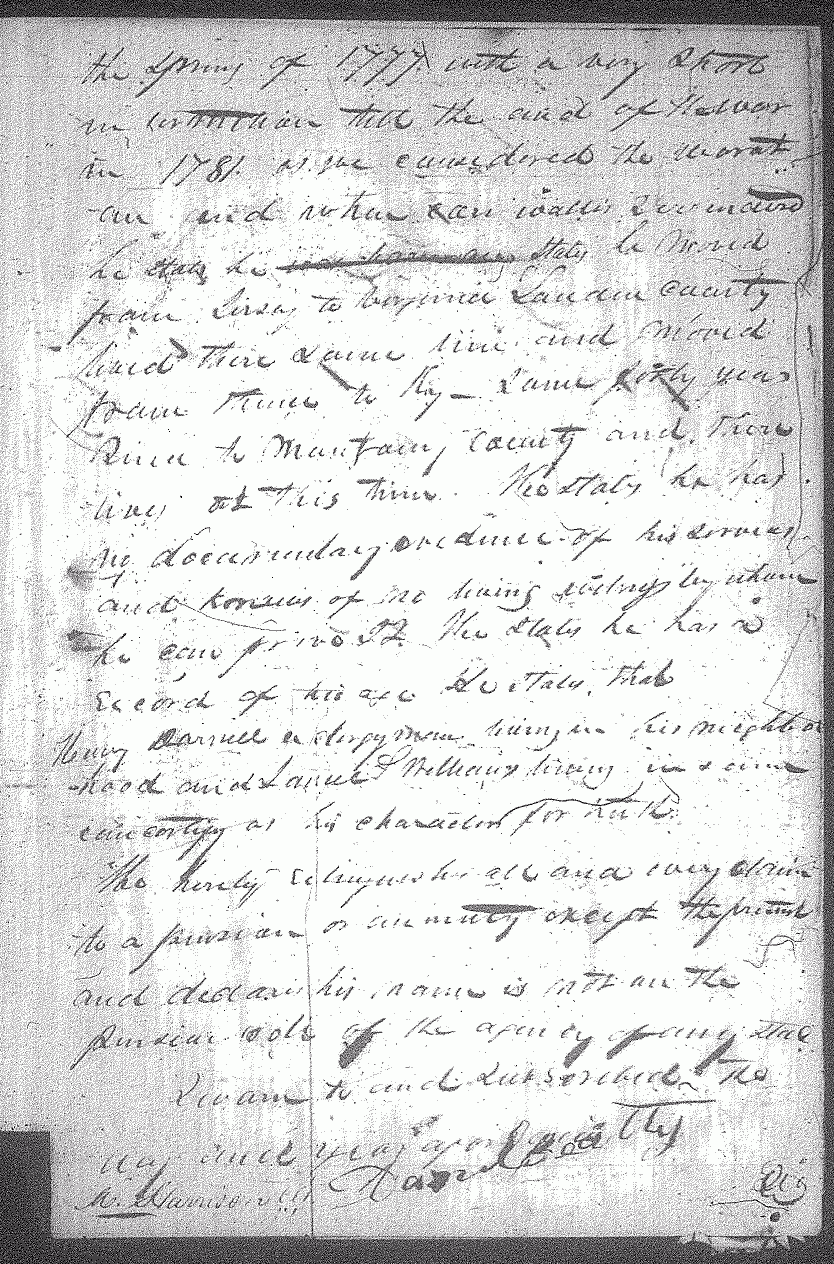 the Spring of 1777 with a very Short
intermition till the end of the war
in 1781. as we considered the war at
an end when Corn wallis Surrendered
he states he states he moved
from Jersey to Virginia Loudon County
lived there Some time and moved
from thence to Ky — Some forty years
Since to Montgomery County and there
lives at this time. He states he has
no documentary evidence of his services
and knows of no living witness by whom
he can prove it. He states he has a
record of his age He states that
Henry Darnell a clergyman living in his neighbor
hood and Williams living in same
can certify as his character for truth
He hereby relinquishes all and every claim
to a pension or annuity except the present
and declares his name is not on the
pension role of the agency of any State
Sworn to and Subscribed the
day and year aforesaid
Beatty
M. Harrison